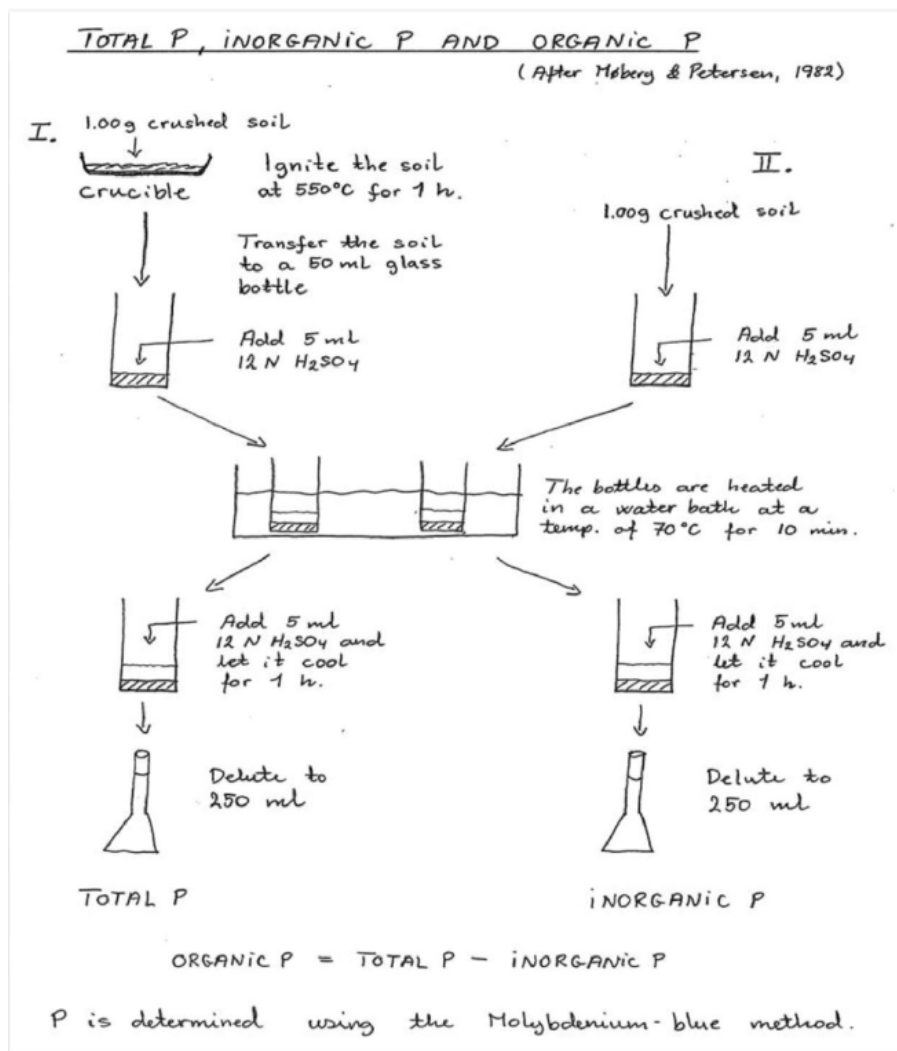 TOTAL P, iNORGANiC P AND ORGANiC P
(After Møberg & Petersen, 1982)
I.
1.00g crushed soil
crucible
Ignite the soil
at 550°C for 1 h.
Transfer the soil
to a 50 ml glass
bottle
Add 5 ml
12 N H₂SO₄
II.
1.00g crushed soil
Add 5 ml
12 N H₂SO₄
The bottles are heated
in a water bath at a
temp. of 70°C for 10 min.
Add 5 ml
12 N H₂SO₄ and
let it cool
for 1 h.
Delute to
250 ml
TOTAL P
Add 5 ml
12 N H₂SO₄ and
let it cool
for 1 h.
Delute to
250 ml
iNORGANiC P
ORGANiC P = TOTAL P - iNORGANiC P
P is determined using the Molybdenium-blue method.